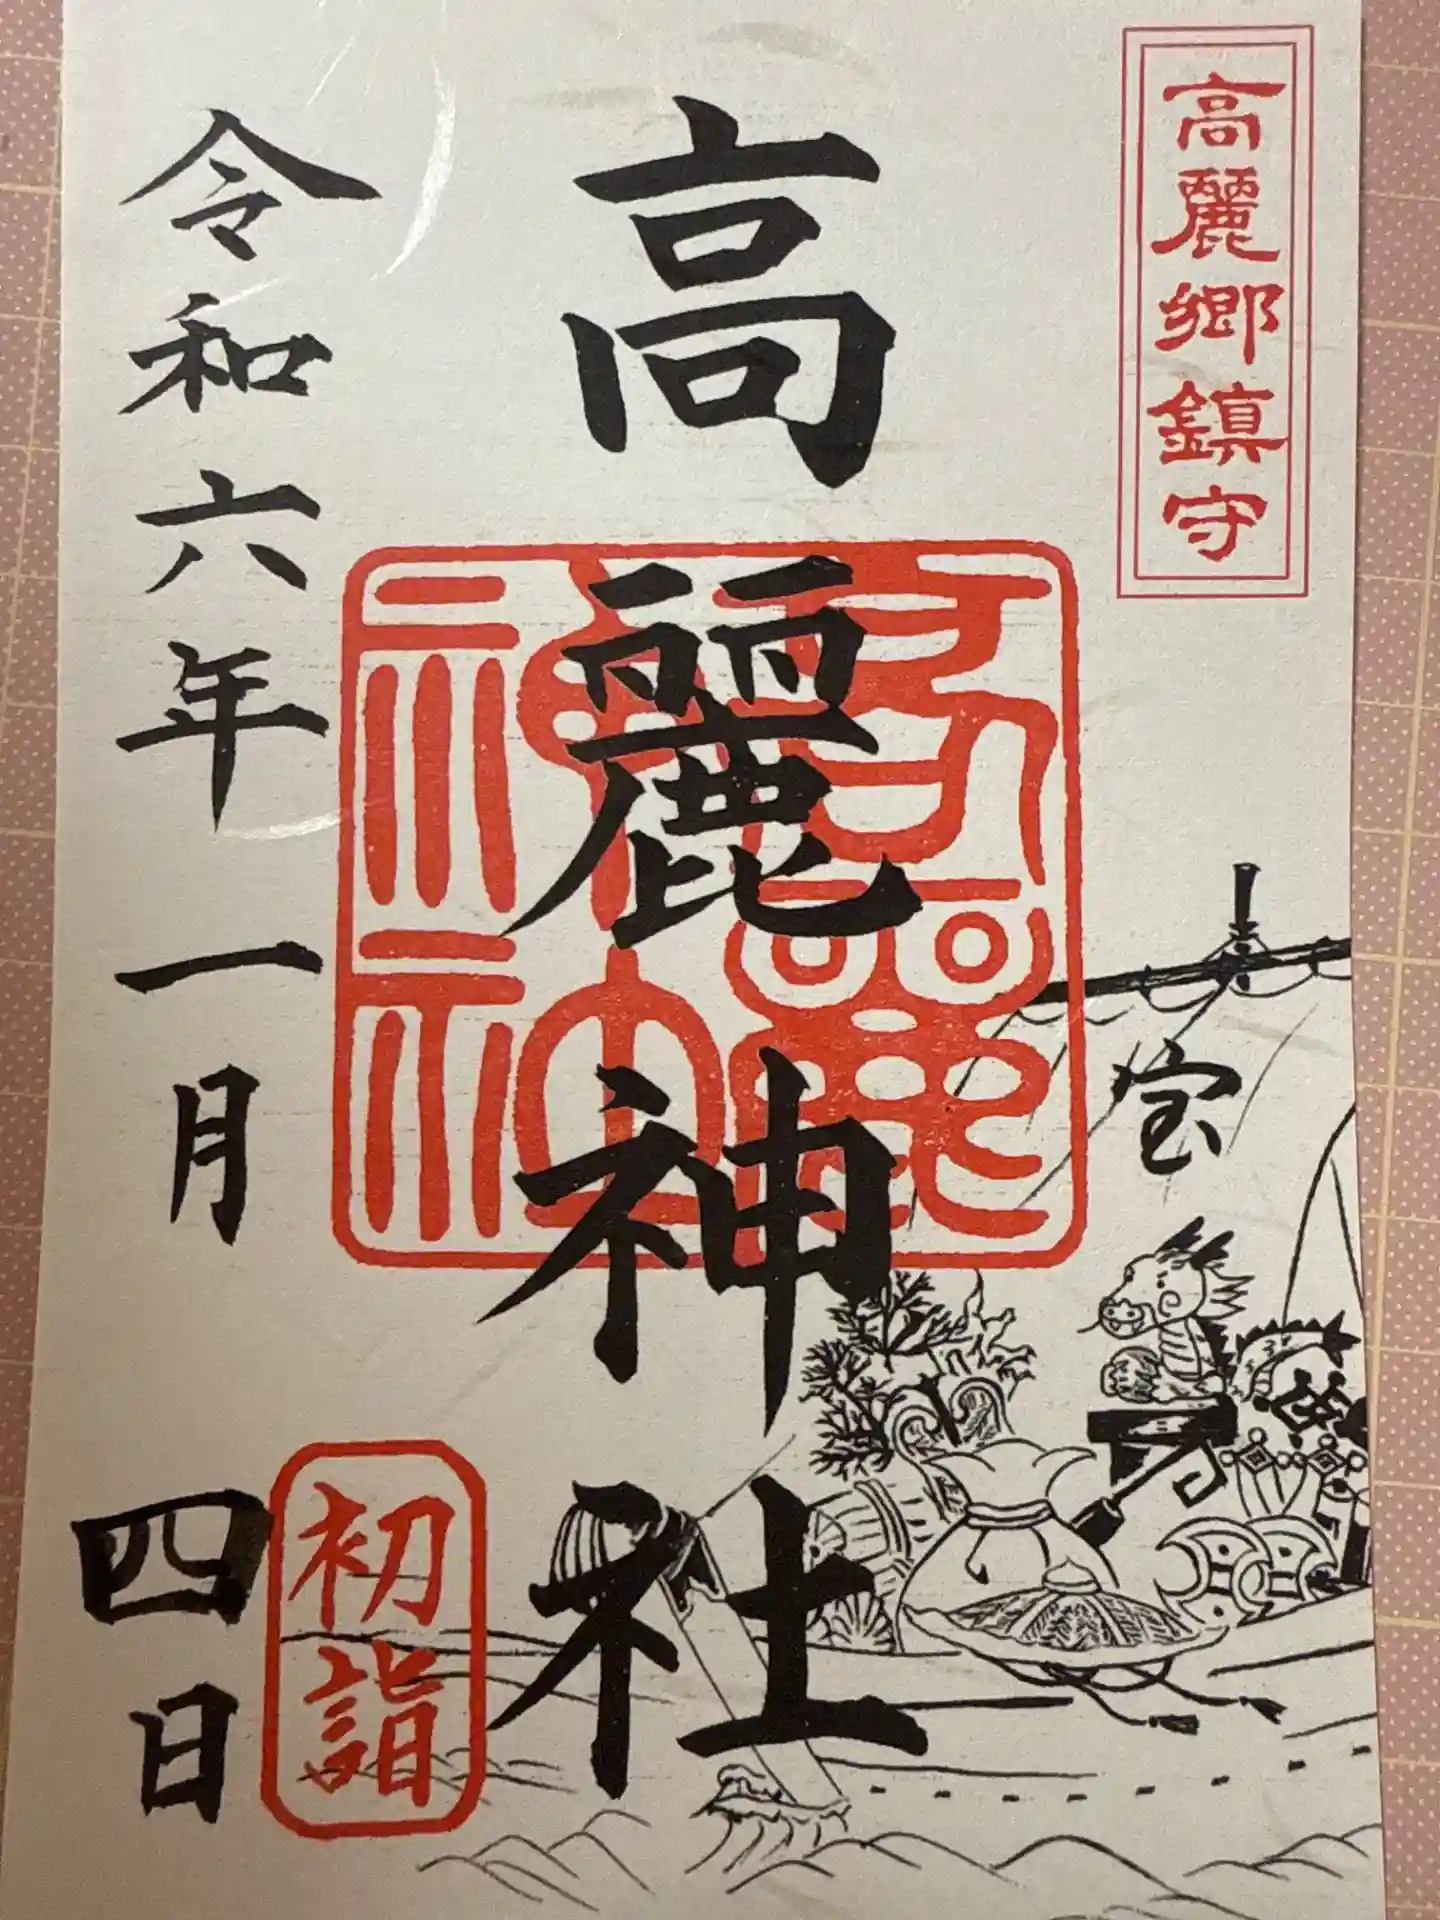 高麗郷鎮守
宝
高麗神社
高麗神社
初詣
令和六年一月四日